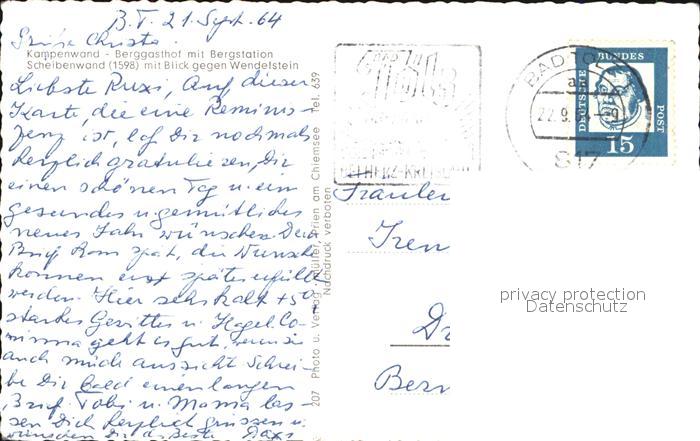 B.T. 21. Sept. 64
Grüße Christa.
Kampenwand - Berggasthof mit Bergstation
Scheibenwand (1598) mit Blick gegen Wendelstein
Liebste Ruxi, Auf dieser
Karte, die eine Reminis-
zenz ist, laß Dir nochmals
herzlich gratulieren, Dir
einen schönen Tag u. ein
gesundes u. gemütliches
neues Jahr wünschen. Dein
Brief kam spät, die Wünsche
können erst später erfüllt
werden. Hier sehr kalt +5°
starkes Gewitter u. Hagel. Co-
geht es gut, wenn sie
auch müde aussieht. Schrei-
be Dir bald einen langen
Brief. Tobi u. Mama las-
sen Dich herzlich grüssen u.
wünschen Dir d. Beste
207 Photo u. Verlag Müller, Prien am Chiemsee Tel. 639
Nachdruck verboten
BAD TÖLZ
22.9.
817
DEUTSCHE
BUNDES
POST
15
Fräulein
Iren
Dr
Bern
privacy protection
Datenschutz